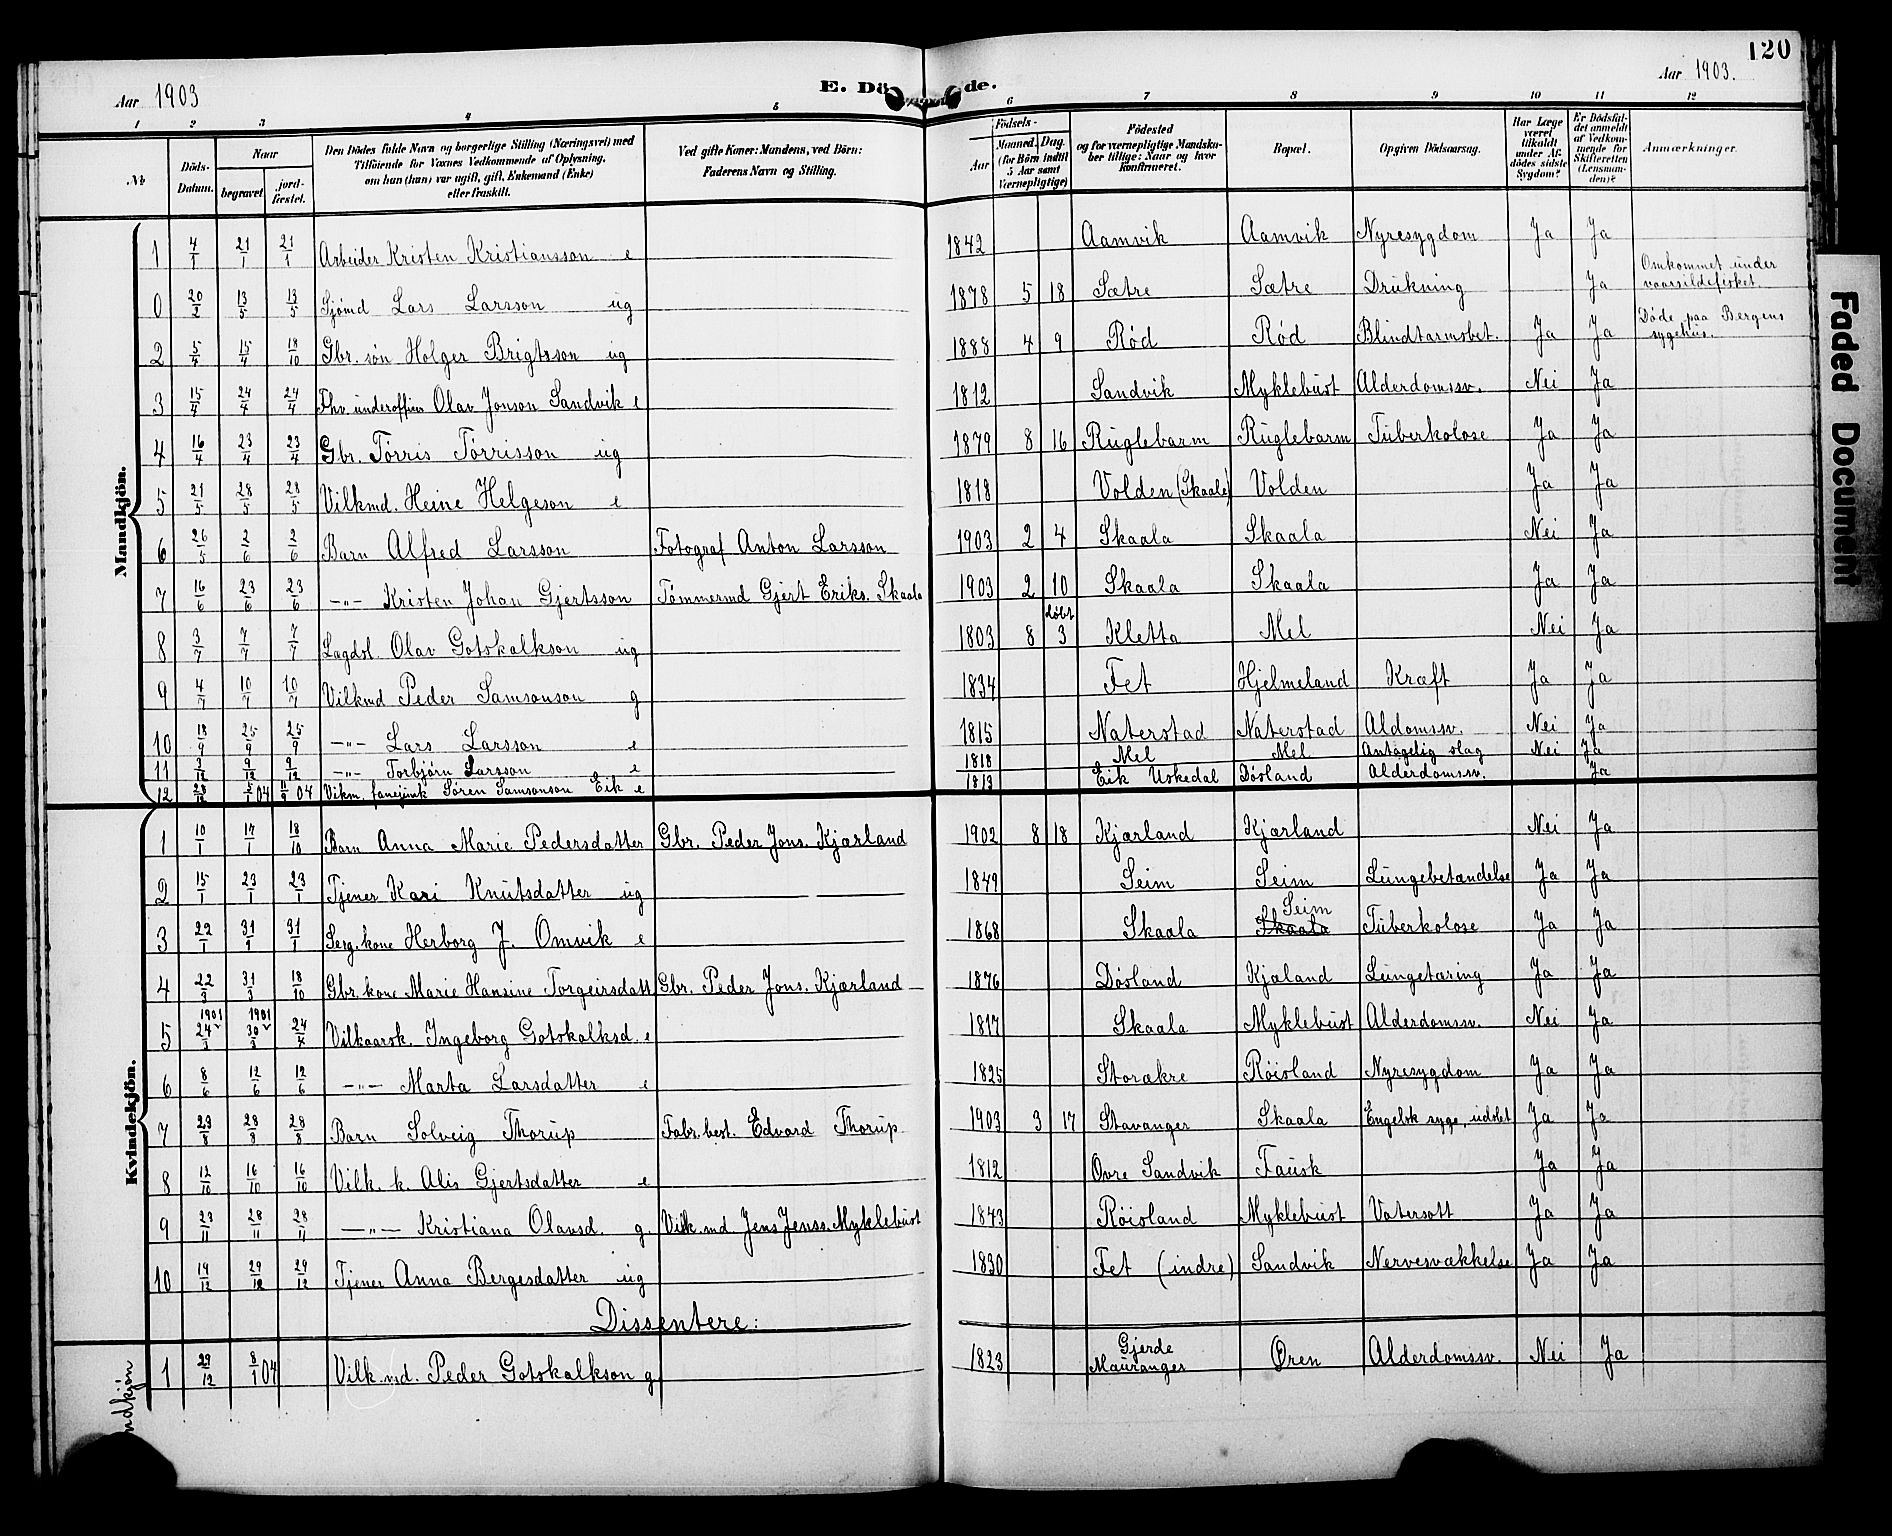 120
Aar 1903
E. Dö de.
Aar 1903.
1 2 3 4 5 6 7 8 9 10 11 12
№
Döds-Datum.
Naar
begravet
jord-fæstet.
Den Dödes fulde Navn og borgerlige Stilling (Næringsvei) med
Tilföiende for Voxnes Vedkommende af Oplysning,
om hun (han) var ugift, gift, Enkemand (Enke)
eller fraskilt.
Ved gifte Koner: Mandens, ved Börn:
Faderens Navn og Stilling.
Födsels-
Aar
Maaned. Dag.
(for Börn indtil
5 Aar samt
Værnepligtige)
Födested
og for værnepligtige Mandska-
ber tillige: Naar og hvor
konfirmeret.
Bopæl.
Opgiven Dödsaarsag.
Har Læge
været
tilkaldt
under Af-
dödes sidste
Sygdom?
Er Dödsfal-
det anmeldt
af Vedkom-
mende for
Skifteretten
(Lensman-
den)?
Anmærkninger.
Mandkjön.
1 4/1 21/1 21/1 Arbeider Kristen Kristiansson e 1842 Aamvik Aamvik Nyresygdom Ja Ja
0 20/2 13/5 13/5 Sjømd Lars Larsson ug 1878 5 18 Sætre Sætre Drukning Ja Omkommet under vaarsildefisket.
2 5/4 15/4 18/10 Gbr. søn Holger Brigtsson ug 1888 4 9 Rød Rød Blindtarmsbet. Ja Ja Døde paa Bergens sygehus.
3 15/4 24/4 24/4 Fhv. underofficer Olav Jonson Sandvik e 1812 Sandvik Myklebust Alderdomssv. Nei Ja
4 16/4 23/4 23/4 Gbr. Tørris Tørrisson ug 1879 8 16 Ruglebarm Ruglebarm Tuberkolose Ja Ja
5 21/5 28/5 28/5 Vilkmd. Heine Helgeson e 1818 Volden (Skaale) Volden Ja Ja
6 26/5 2/6 2/6 Barn Alfred Larsson Fotograf Anton Larsson 1903 2 4 Skaala Skaala Nei Ja
7 16/6 23/6 23/6 -"- Kristen Johan Gjertsson Tømmermd Gjert Eriks. Skaala 1903 2 10 Skaala Skaala Ja Ja
8 3/7 7/7 7/7 Lagdsl. Olav Gotskalkson ug 1803 8 døbt 3 Kletta Mel Nei Ja
9 4/7 10/7 10/7 Vilkmd Peder Samsonson g 1834 Fet Hjelmeland Kræft Ja Ja
10 18/9 25/9 25/9 -"- Lars Larsson e 1815 Naterstad Naterstad Aldomssv. Nei Ja
11 3/12 9/12 9/12 -"- Torbjørn Larsson e 1818 Mel Mel Antagelig slag Nei Ja
12 28/12 5/1 04 11/9 04 Vikm. fanejunk Søren Samsonson Eik e 1813 Eik Uskedal Døsland Alderdomssv. Ja
Kvindekjön.
1 10/1 17/1 18/10 Barn Anna Marie Pedersdatter Gbr. Peder Jons. Kjærland 1902 8 18 Kjærland Kjærland Nei Ja
2 15/1 23/1 23/1 Tjener Kari Knutsdatter ug 1849 Seim Seim Lungebetændelse Ja Ja
3 22/1 31/1 31/1 Serg. kone Herborg J. Omvik e 1868 Skaala Skaala Seim Tuberkolose Ja Ja
4 22/3 31/3 18/10 Gbr. kone Marie Hansine Torgeirsdatt Gbr. Peder Jons. Kjærland 1876 Døsland Kjæland Lungetæring Ja Ja
5 1901 24/3 1901 30/3 24/4 Vilkaarsk. Ingeborg Gotskalksd. e 1817 Skaala Myklebust Alderdomssv. Nei Ja
6 8/6 12/6 12/6 -"- Marta Larsdatter e 1825 Storækre Røisland Nyresygdom Ja Ja
7 23/8 28/8 28/8 Barn Solveig Thorup Fabr. best. Edvard Thorup. 1903 3 17 Stavanger Skaala Engelsk syge, udslet Ja Ja
8 12/10 16/10 16/10 Vilk. k. Alis Gjertsdatter e 1812 Øvre Sandvik Fausk Ja Ja
9 23/11 28/11 28/11 -"- Kristiana Olavsd. g. Vilk. md Jens Jenss. Myklebust 1843 Røisland Myklebust Vatersott Ja Ja
10 19/12 29/12 29/12 Tjener Anna Bergesdatter ug 1830 Fet (indre) Sandvik Nervesvækkelse Ja Ja
Dissentere:
ndkjön
1 29/12 8/1 04 Vilk. md. Peder Gotskalkson g 1823 Gjerde Mauranger Øren Alderdomssv. Nei Ja
Faded Document